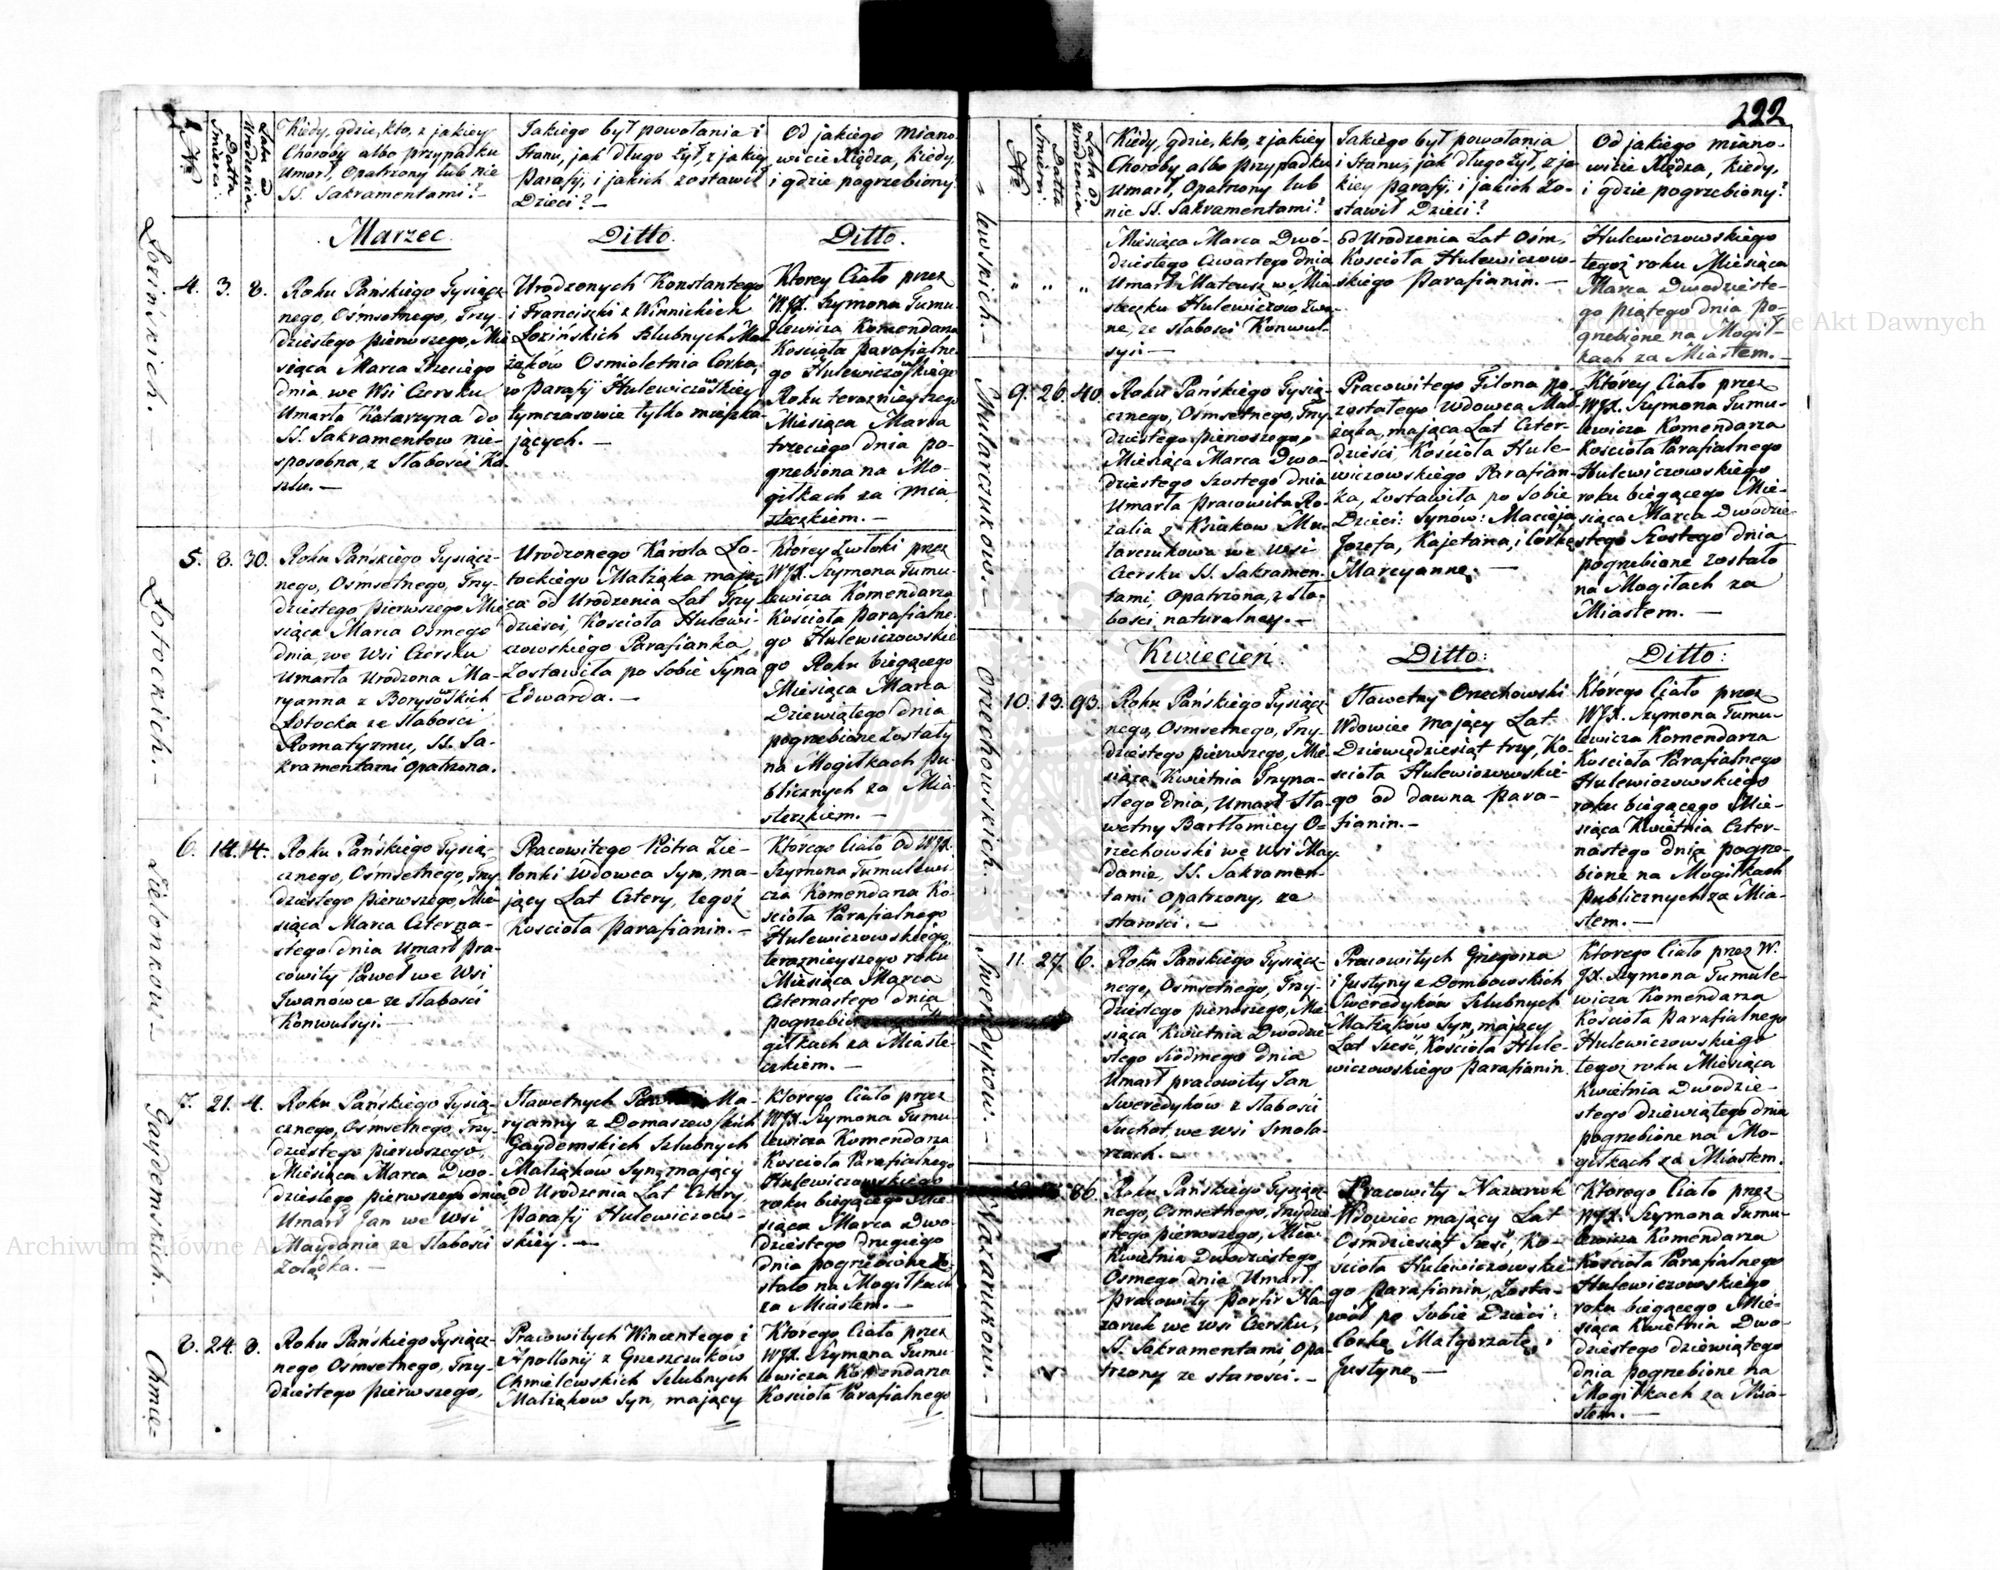 222
№
Datta Śmierci.
Lata od Urodzenia.
Kiedy, gdzie, kto, z jakiey
Choroby albo przypadku
Umarł, Opatrzony lub nie
SS. Sakramentami? —
Jakiego był powołania i
Stanu, jak długo żył, z jakiey
Parafij, i jakich zostawił
Dzieci? —
Od jakiego miano-
wicie Xiędza, kiedy,
i gdzie pogrzebiony?
Marzec.
Ditto.
Ditto.
Łozińskich. —
4. 3. 8.
Roku Pańskiego Tysiącz-
nego, Osmsetnego, Trzy-
dziestego pierwszego, Mie-
siąca Marca Trzeciego
dnia, we Wsi Czersku
Umarła Katarzyna do
SS. Sakramentow nie-
sposobna, z Słabości Ka-
szlu. —
Urodzonych Konstantego
i Franciszki z Winnickich
Łozińskich Szlubnych Mał-
żąków Osmioletnia Corka,
w Parafij Hulewiczowskiey
tymczasowie tylko mieszka-
jących. —
Ktorey Ciało przez
WJX. Szymona Tumu-
lewicza Komendarza
Kościoła Parafialne-
go Hulewiczowskiego
Roku teraznieyszego
Miesiąca Marca
trzeciego dnia po-
grzebiona na Mo-
giłkach za Mia-
steczkiem. —
Łotockich. —
5. 8. 30.
Roku Pańskiego Tysiącz-
nego, Osmsetnego, Trzy-
dziestego pierwszego Mie-
siąca Marca Osmego
dnia, we Wsi Czersku
Umarła Urodzona Ma-
ryanna z Borysowskich
Łotocka ze Słabości
Romatyzmu, SS. Sa-
kramentami Opatrzona.
Urodzonego Karola Ło-
tockiego Małżąka mają-
ca od Urodzenia Lat Trzy-
dzieści, Kościoła Hulewi-
czowskiego Parafianka,
Zostawiła po Sobie Syna
Edwarda. —
Którey Zwłoki przez
WJX. Szymona Tumu-
lewicza Komendarza
Kościoła Parafialne-
go Hulewiczowskie-
go Roku bieżącego
Miesiąca Marca
Dziewiątego dnia
pogrzebione Zostały
na Mogiłkach pu-
blicznych za Mia-
steczkiem. —
Zielonkow —
6. 14. 4.
Roku Pańskiego Tysią-
cznego, Osmsetnego, Trzy-
dziestego pierwszego, Mie-
siąca Marca Czterna-
stego dnia Umarł Pra-
cowity Paweł we Wsi
Iwanówce ze Słabości
Konwulsyi. —
Pracowitego Piotra Zie-
lonki Wdowca Syn, ma-
jący Lat Cztery, tegoż
Kościoła Parafianin. —
Którego Ciało Od WJX.
Szymona Tumulewi-
cza Komendarza Ko-
ścioła Parafialnego
Hulewiczowskiego,
teraznieyszego roku
Miesiąca Marca
Czternastego dnia
pogrzebio
giłkach za Miaste-
czkiem. —
Gaydemskich. —
7. 21. 4.
Roku Pańskiego Tysią-
cznego, Osmsetnego, Trzy-
dziestego pierwszego,
Miesiąca Marca Dwo-
dziestego pierwszego dnia
Umarł Jan we Wsi
Maydanie ze Słabości
Zołądka. —
Sławetnych Ma-
ryanny z Domaszewskich
Gaydemskich Szlubnych
Małżąków Syn, mający
od Urodzenia Lat Cztery,
Parafij Hulewiczow-
skiey. —
Ktorego Ciało przez
WJX. Szymona Tumu-
lewicza Komendarza
Kościoła Parafialnego
Hulewiczowskiego
roku bieżącego Mie-
siąca Marca Dwo-
dziestego drugiego
dnia pogrzebione Zo-
stało na Mogiłkach
za Miastem. —
Chmie-
8. 24. 8.
Roku Pańskiego Tysiącz-
nego Osmsetnego, Trzy-
dziestego pierwszego,
Pracowitych Wincentego i
Apollonij z Greszczuków
Chmielewskich Szlubnych
Małżąkow Syn, mający
Ktorego Ciało przez
WJX. Szymona Tumu-
lewicza Komendarza
Kościoła Parafialnego
№
Datta Śmierci.
Lata od Urodzenia
Kiedy, gdzie, kto, z jakiey
Choroby, albo Przypadku
Umarł, Opatrzony lub
nie SS. Sakramentami?
Jakiego był powołania
i Stanu, jak długo żył, z ja-
kiey parafij, i jakich Zo-
stawił Dzieci?
Od jakiego miano-
wicie Xiędza, Kiedy,
i gdzie pogrzebiony?
lewskich. —
" " "
Miesiąca Marca Dwó-
dziestego Czwartego dnia
Umarł Mateusz w Mia-
steczku Hulewiczow Zwa-
ne, ze słabości Konwul-
syi —
od Urodzenia Lat Ośm,
Kościoła Hulewiczow-
skiego Parafianin. —
Hulewiczowskiego
tegoż roku Miesiąca
Marca Dwodzieste-
go piątego dnia po-
grzebione na Mogił-
kach za Miastem. —
Mularczukow. —
9. 26. 40.
Roku Pańskiego Tysią-
cznego, Osmsetnego, Trzy-
dziestego pierwszego,
Miesiąca Marca Dwo-
dziestego Szostego dnia
Umarła Pracowita Ro-
zalia z Kniakow Mu-
larczukowa we Wsi
Czersku SS. Sakramen-
tami, Opatrzona, z Sła-
bości naturalney. —
Pracowitego Filona po-
zostałego Wdowca Mał-
żąka, mająca Lat Czter-
dzieści, Kościoła Hule-
wiczowskiego Parafian-
ka, Zostawiła po Sobie
Dzieci: Synów: Macieja
Jozefa, Kajetana, i Corkę
Marcyannę. —
Którey Ciało przez
WJX. Szymona Tumu-
lewicza Komendarza
Kościoła Parafialnego
Hulewiczowskiego
roku bieżącego Mie-
siąca Marca Dwodzie-
stego Szostego dnia
pogrzebione zostało
na Mogiłach za
Miastem. —
Kwiecień.
Ditto:
Ditto:
Orzechowskich. —
10. 13. 93.
Roku Pańskiego Tysiącz-
nego, Osmsetnego, Trzy-
dziestego pierwszego, Mie-
siąca Kwietnia Trzyna-
stego dnia, Umarł Sła-
wetny Bartłomiey O-
rzechowski we Wsi May-
danie, SS. Sakramen-
tami Opatrzony, ze
starości. —
Sławetny Orzechowski
Wdowiec mający Lat
Dziewiędziesiąt trzy, Ko-
scioła Hulewiczowskie-
go od dawna Para-
fianin. —
Którego Ciało przez
WJX. Szymona Tumu-
lewicza Komendarza
Kościoła Parafialnego
Hulewiczowskiego
roku bieżącego Mie-
siąca Kwietnia Czter-
nastego dnia pogrze-
bione na Mogiłkach
Publicznych za Mia-
stem. —
Sweredykow. —
11. 27. 6.
Roku Pańskiego Tysiącz-
nego, Osmsetnego, Trzy-
dziestego pierwszego, Mie-
siąca Kwietnia Dwodzie-
stego Siodmego dnia
Umarł pracowity Jan
Sweredyków z słabości
Suchot, we Wsi Smola-
rzach. —
Pracowitych Grzegorza
i Justyny z Dembowskich
Sweredyków Szlubnych
Małżąków Syn, mający
Lat Sześć, Kościoła Hule-
wiczowskiego Parafianin
Ktorego Ciało przez W.
JX. Szymona Tumule-
wicza Komendarza
Kościoła Parafialnego
Hulewiczowskiego
tegoz roku Miesiąca
Kwietnia Dwodzie-
stego dziewiątego dnia
pogrzebione na Mo-
giłkach za Miastem.
Nazarukow. —
86.
Roku Pańskiego Tysiącz-
nego, Osmsetnego, Trzydzie-
stego pierwszego, Mies:
Kwietnia Dwodziestego
Osmego dnia Umarł
Pracowity Porfir Na-
zaruk we Wsi Czersku,
SS. Sakramentami Opa-
trzony ze starości. —
Pracowity Nazaruk
Wdowiec mający Lat
Osmdziesiąt Sześć, Ko-
scioła Hulewiczowskie-
go Parafianin, Zosta-
wił po Sobie Dzieci:
Corkę Małgorzatę, i
Justynę —
Ktorego Ciało przez
WJX. Szymona Tumu-
lewicza Komendarza
Kościoła Parafialnego
Hulewiczowskiego
roku bieżącego Mie-
siąca Kwietnia Dwo-
dziestego dziewiątego
dnia pogrzebione na
Mogiłkach za Mia-
stem. —
Archiwum Główne Akt Dawnych
Archiwum Główne Akt Dawnych